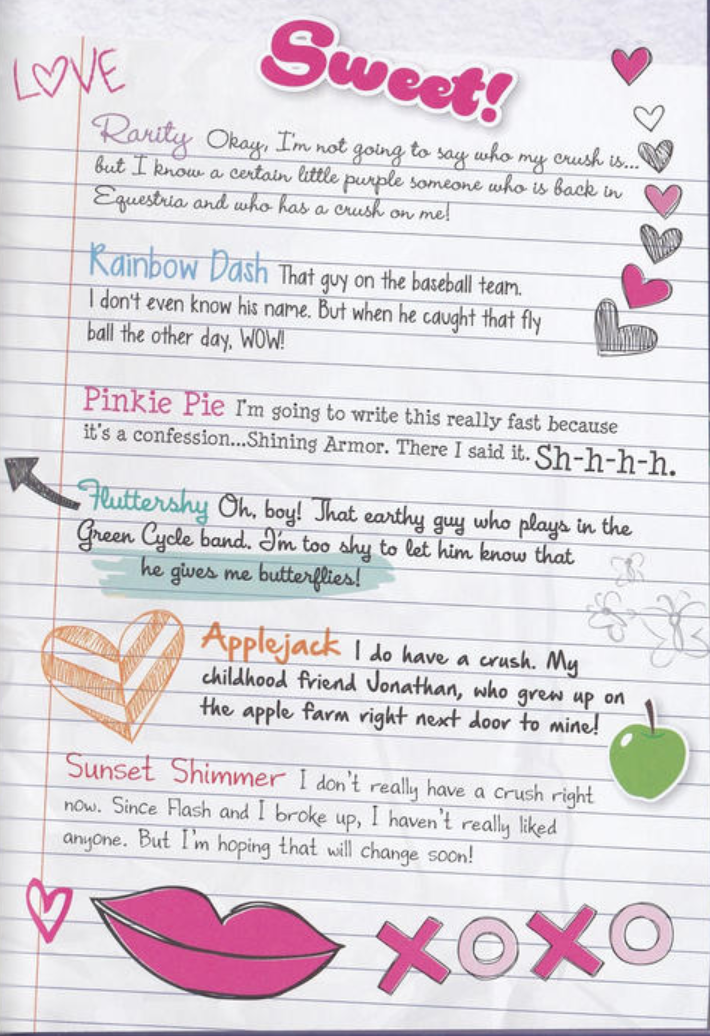 LOVE
Sweet!
Rarity Okay, I'm not going to say who my crush is...
but I know a certain little purple someone who is back in
Equestria and who has a crush on me!
Rainbow Dash That guy on the baseball team.
I don't even know his name. But when he caught that fly
ball the other day, WOW!
Pinkie Pie I'm going to write this really fast because
it's a confession...Shining Armor. There I said it. Sh-h-h-h.
Fluttershy Oh, boy! That earthy guy who plays in the
Green Cycle band. I'm too shy to let him know that
he gives me butterflies!
Applejack I do have a crush. My
childhood friend Jonathan, who grew up on
the apple farm right next door to mine!
Sunset Shimmer I don't really have a crush right
now. Since Flash and I broke up, I haven't really liked
anyone. But I'm hoping that will change soon!
XOXO